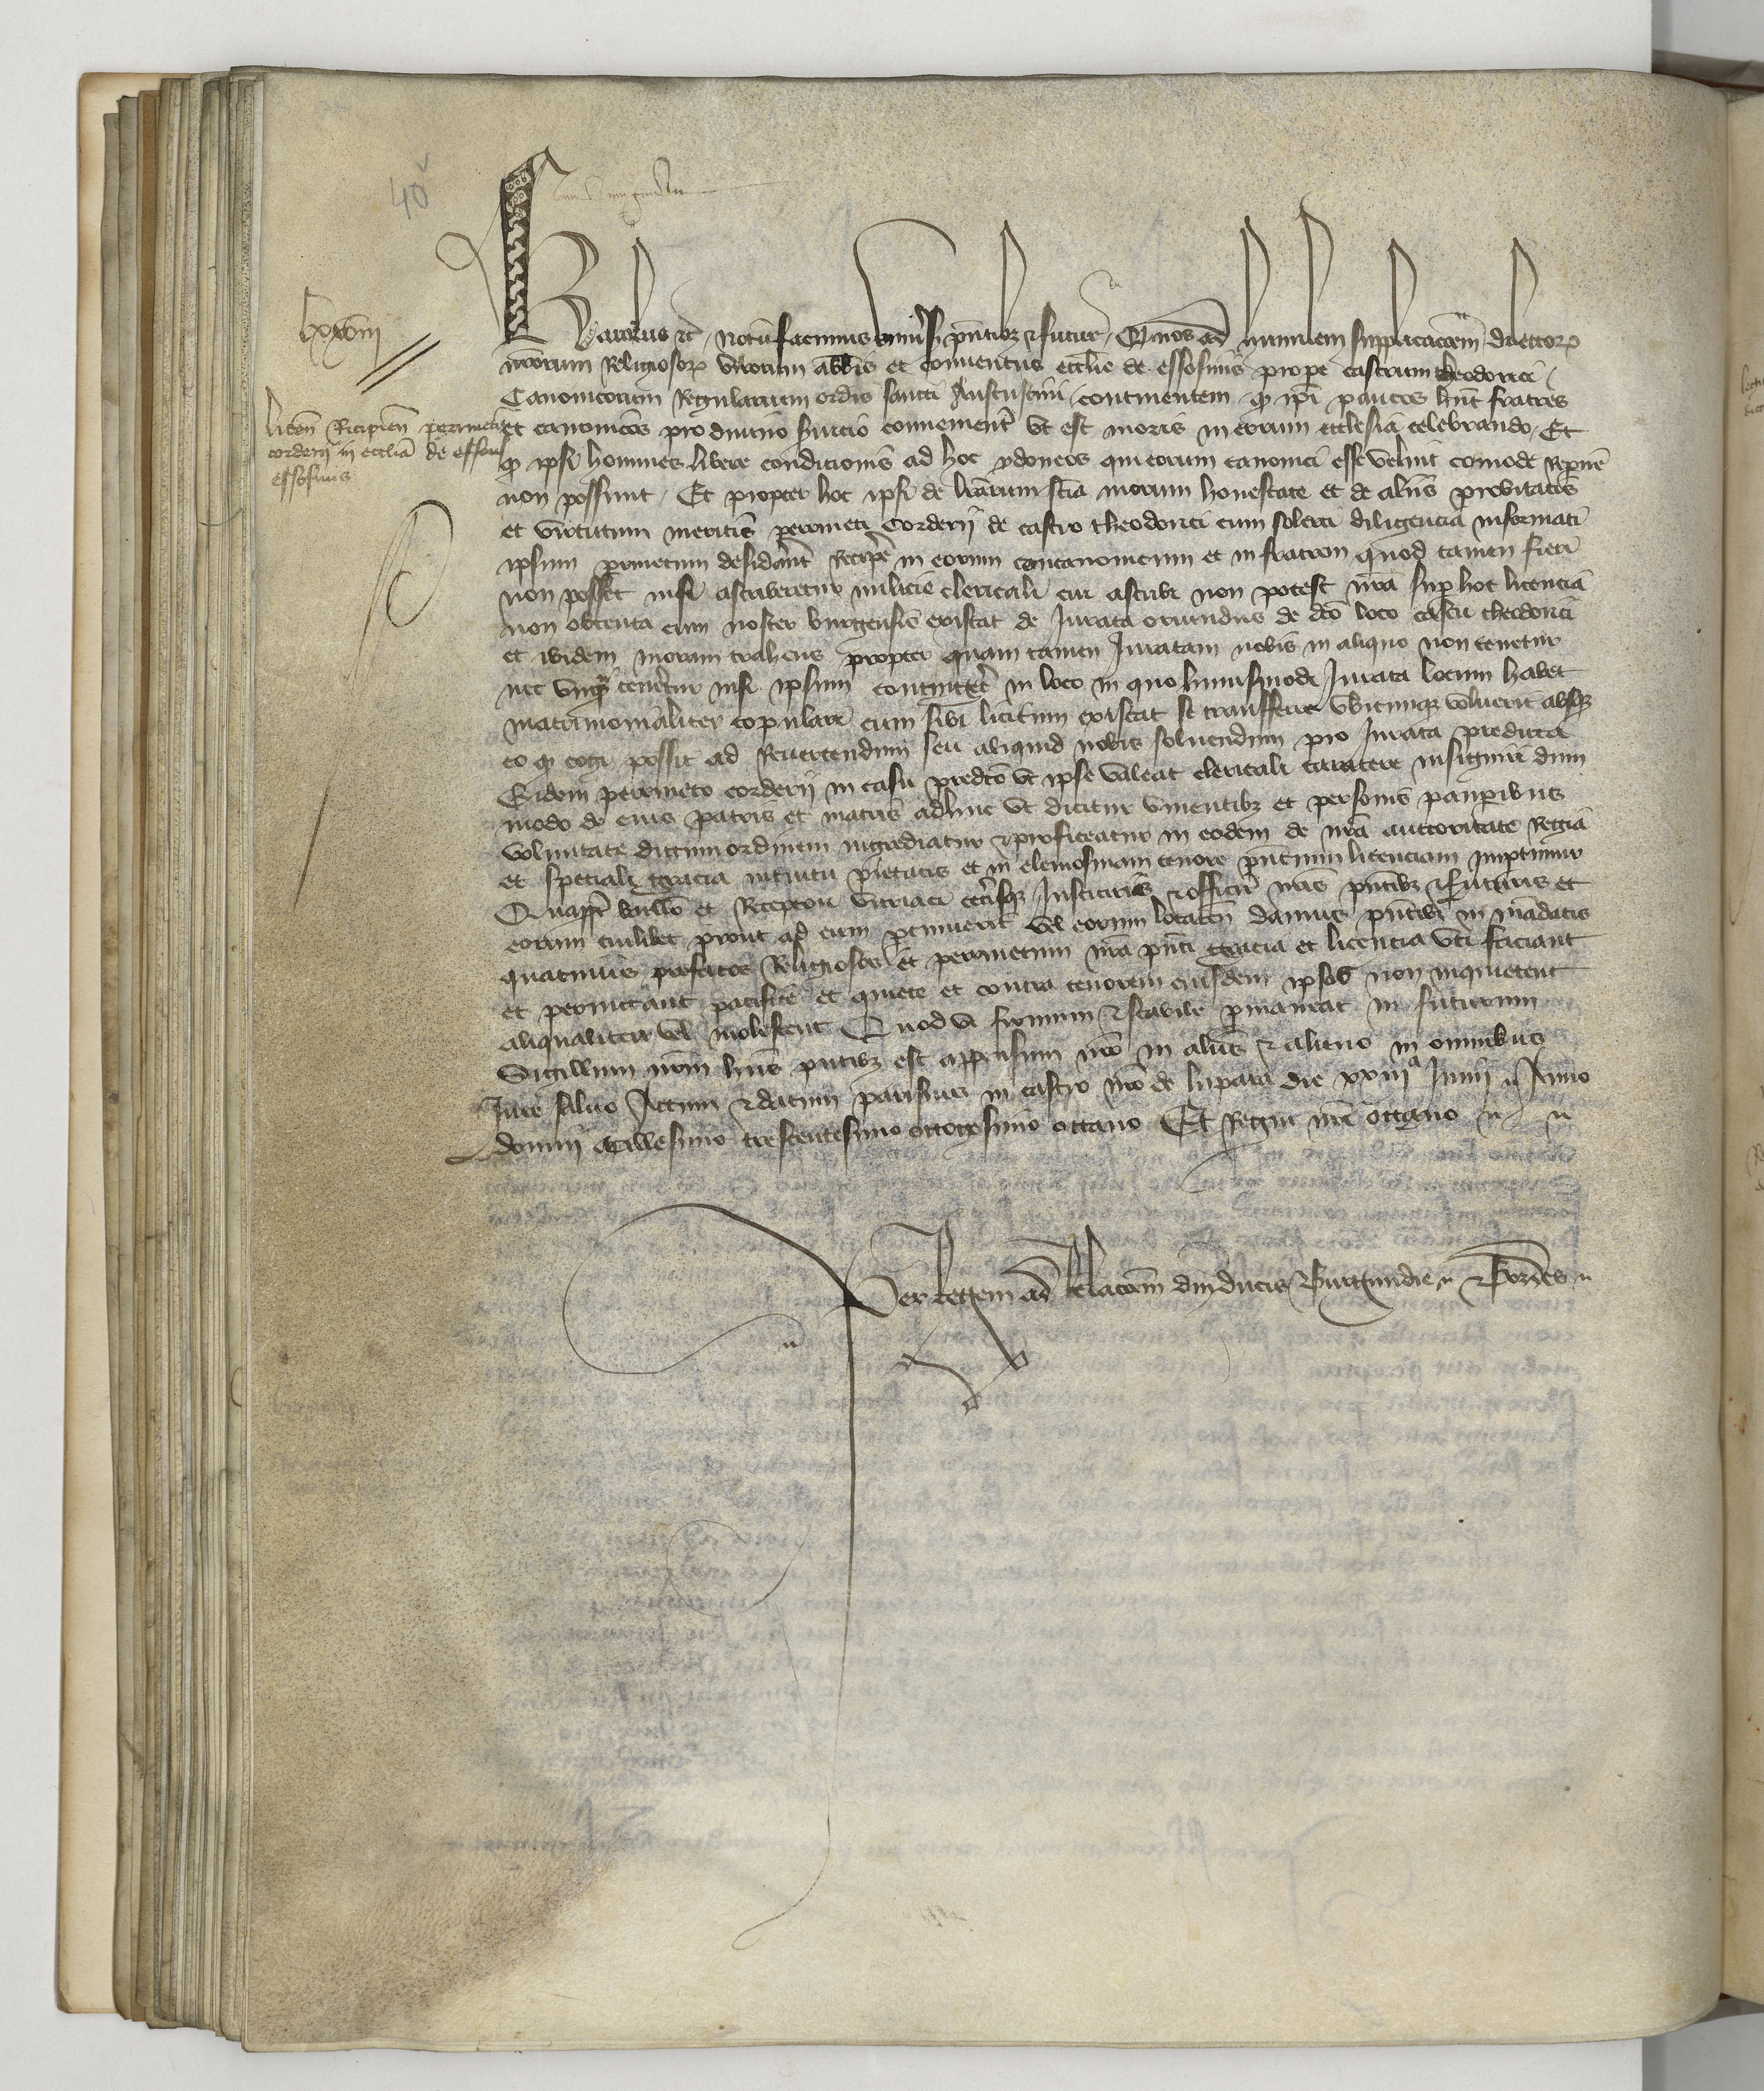 40v
lxxviii
licen Recipien perrineti
corderii in ecclia de essou
essosmis
Karolus etc notu facimus universis pntibz et futur Q nos ad humilem supplicacoem dilector
nrorum Religiosor virorum abbis et conventus ecclie de essosmis prope castrum theodorici
Canonicorum Regularium ordis sancti Augustini continentem q ipi paucos hnt fratres
et canonicos pro divino svicio convenient ut est moris in eorum ecclesia celebrando Et
q ipsi homines libere condicionis ad hoc ydoneos qui eorum canonici esse velint comode
non possunt Et propter hoc ipsi de lrarum scia morum honestate et de aliis probitatis
et virtutum meritis perrineti Corderii de castro theodorici cum solerti diligencia informati
ipsum perrinetum desidant Recipe in eorum concanonicum et in fratrem quod tamen fieri
non posset nisi ascriberetur milicie clericali cui ascribi non potest nra sup hoc licencia
non obtenta cum noster burgensis existat de Jurata oriundus de dco loco castri theodorici
et ibidem moram trahens propter quam tamen Juratam nobis in aliquo non tenetur
nec unqua tenetur nisi ipsum contingeret in loco in quo huiusmodi Jurata locum habet
matrimonialiter copulare cum sibi licitum existat se transferre ubicunqz voluerit absqz
eo q cogi possit ad Revertendum seu aliquid nobis solvendum pro Jurata predicta
Eidem perrineto corderii in casu predco ut ipse valeat clericali caractere insigniri dum
modo de eius patris et matris adhuc ut dicitur viventibz et personis pauperibus
voluntate dictum ordinem ingrediatur et proficeatur in eodem de nra auctoritate Regia
et speciali gracia intuitu pietatis et in elemosinam tenore pntium licenciam impertimur
Quapp baillo et Receptori vitriaci ceterisqz Justiciariis et officiar nris pntibz et futuris et
eorum cuilibet prout ad eum ptinuerit vel eorum locaten damus pntibz in madatis
quatinus prefatos Religiosos et perrinetum nra pnti gracia et licencia uti faciant
et permittant pacifice et quiete et contra tenorem eiusdem ipsos non inquietent
aliqualiter vel molestent Quod ut firmum et stabile pmaneat in futurum
Sigillum nrm hiis pntibz est appensum nro in aliis et alieno in omnibus
Jure salvo Actum et datum parisius in castro nro de lupara die xxiiia Junii Anno
domini Millesimo trescentesimo octogesimo octavo Et Regni nri octavo
Per Regem ad Relacoem dni ducis Burgundie